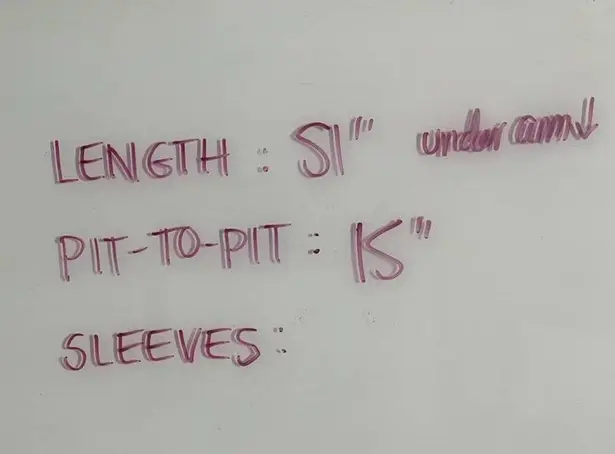 LENGTH : 51" under arm ↓
PIT-TO-PIT : 15"
SLEEVES :